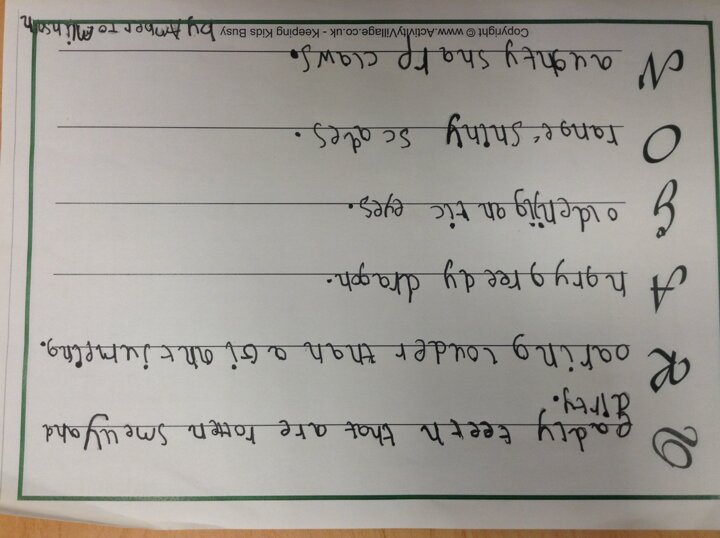 D eadly teeth that are rotten smellyand
dirty.
R oaring louder than a Giant jumping.
A ngry greedy dragon.
G olden jigantic eyes.
O range shiny scales.
N aughty sharp claws.
Copyright © www.ActivityVillage.co.uk - Keeping Kids Busy by Amber